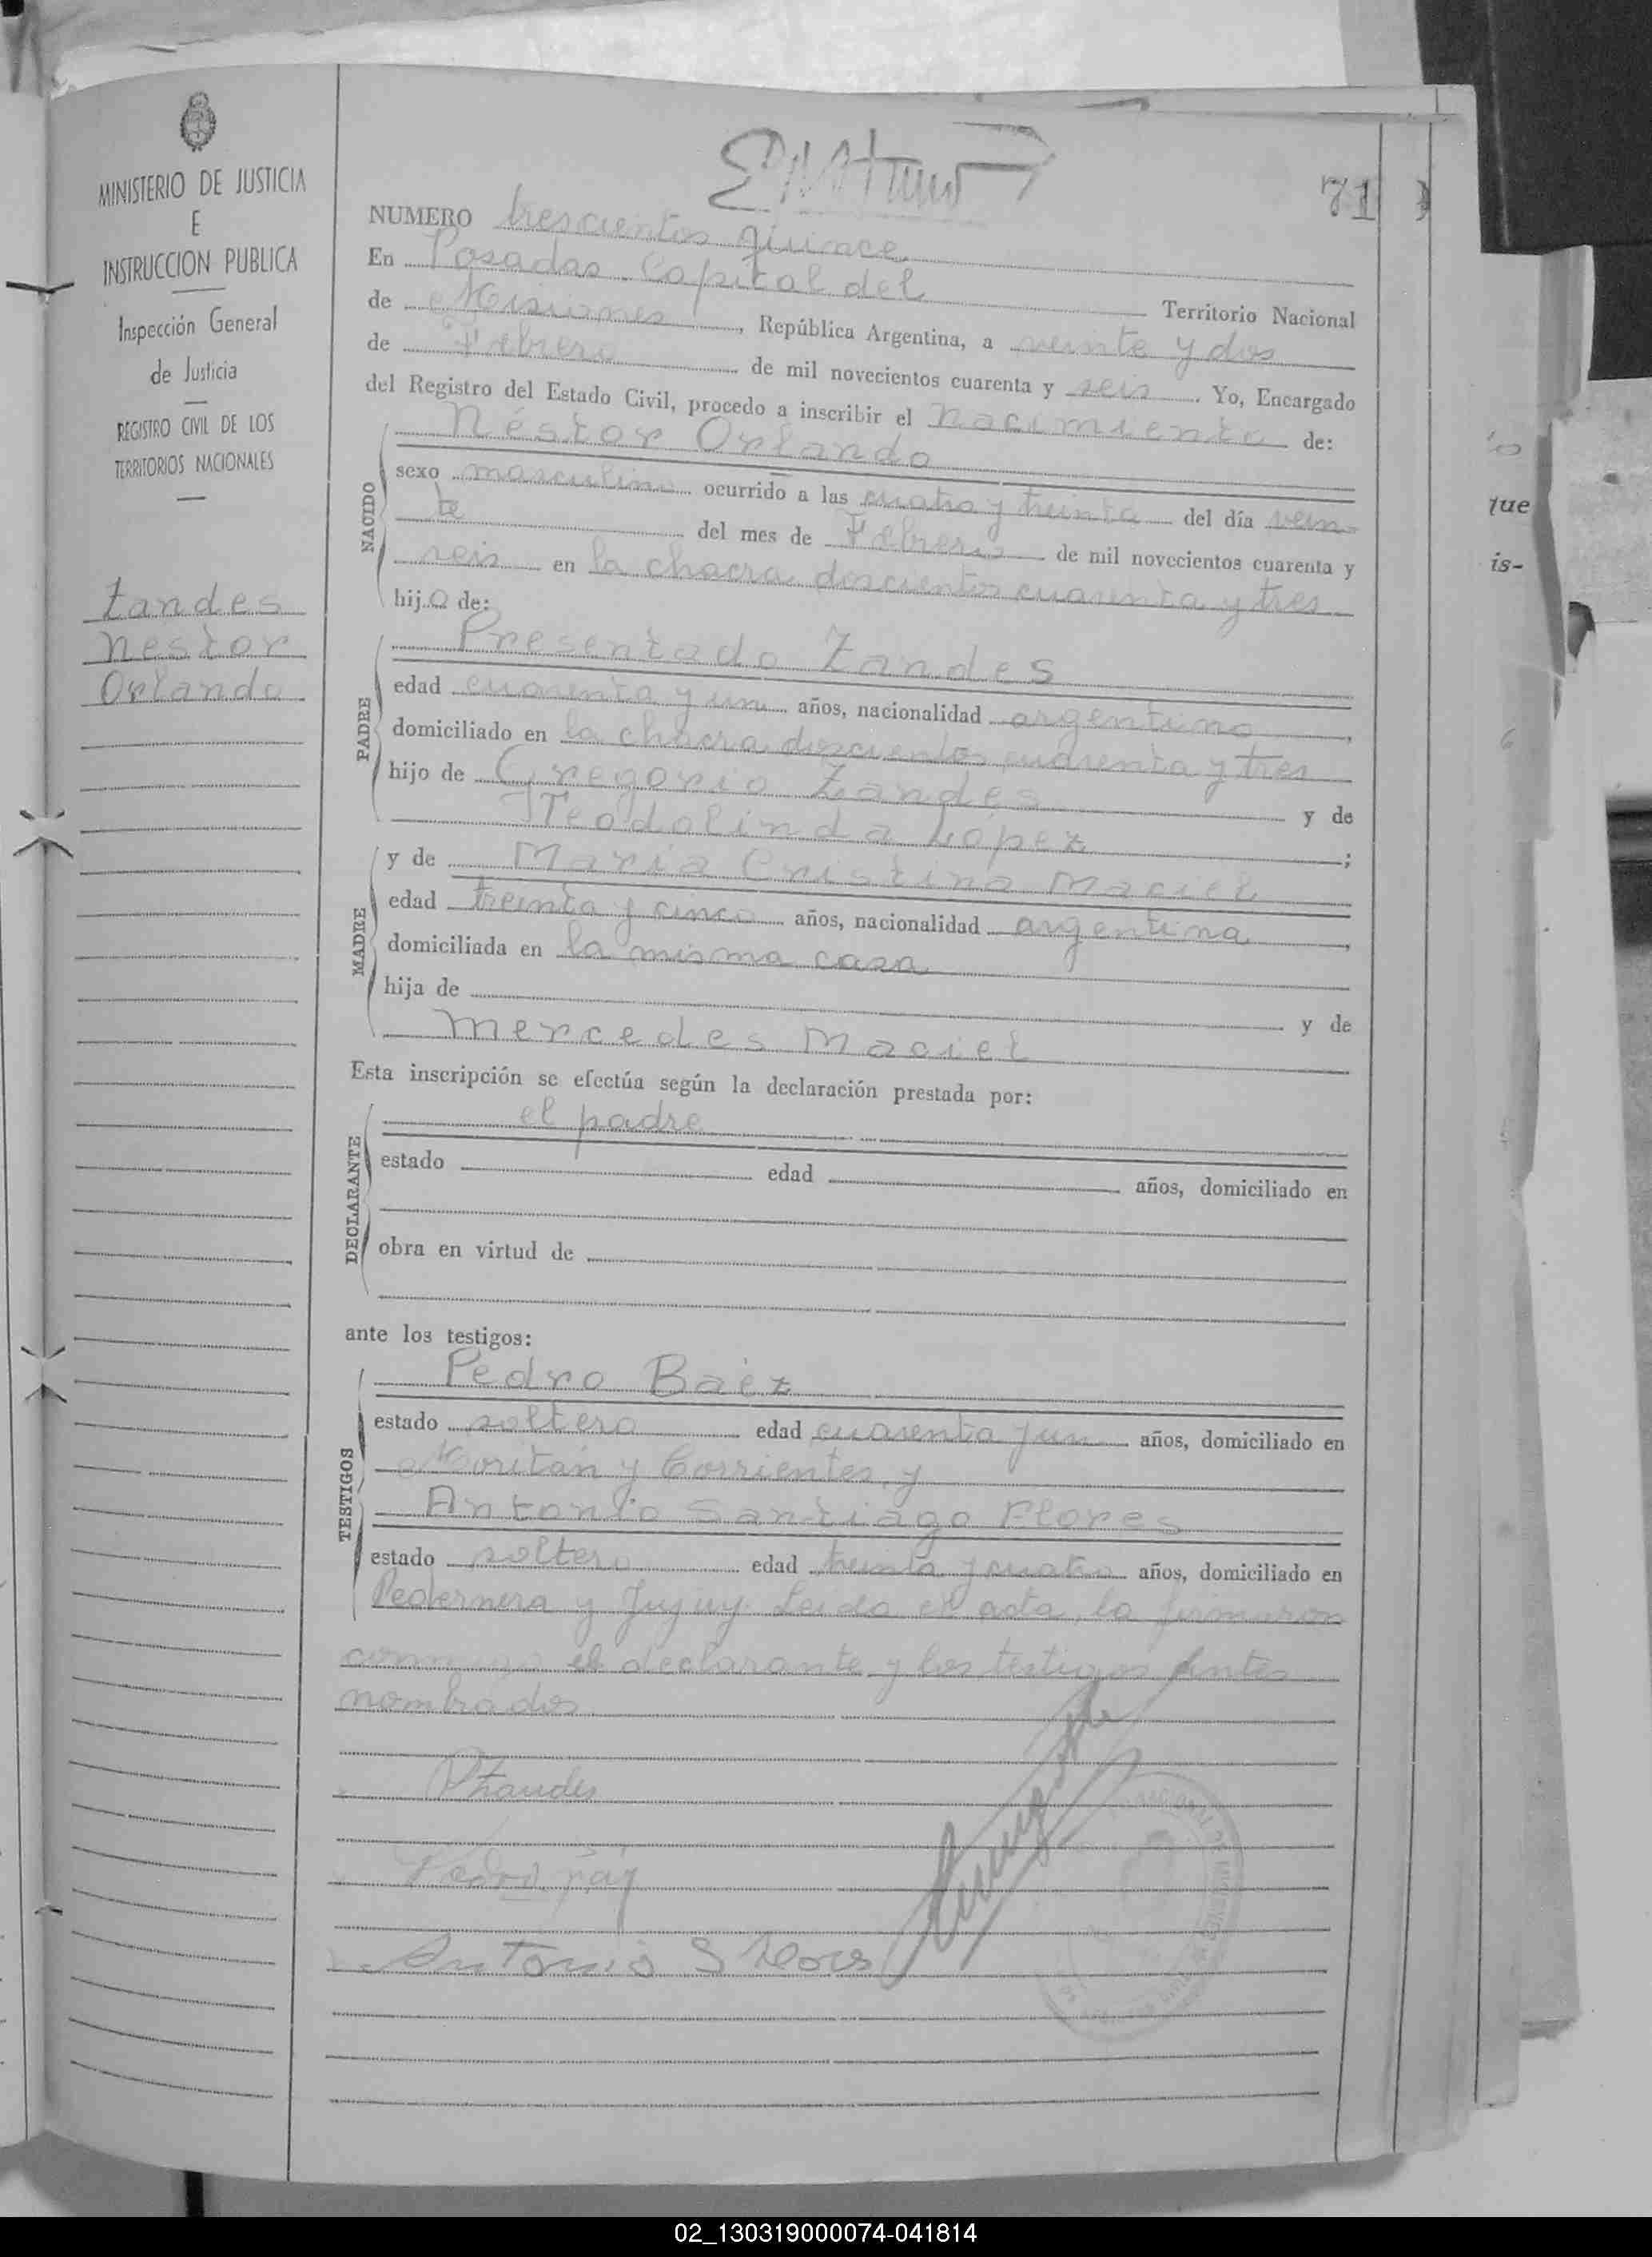 MINISTERIO DE JUSTICIA
E
INSTRUCCION PUBLICA
Inspección General
de Justicia
REGISTRO CIVIL DE LOS
TERRITORIOS NACIONALES
Zandes
Nestor
Orlando
71
NUMERO trescientos quince
En Posadas Capital del Territorio Nacional
de Misiones, República Argentina, a veinte y dos
de Febrero de mil novecientos cuarenta y seis. Yo, Encargado
del Registro del Estado Civil, procedo a inscribir el nacimiento de:
NACIDO
Néstor Orlando
sexo masculino ocurrido a las cuatro y treinta del día vein-
te del mes de Febrero de mil novecientos cuarenta y
seis en la chacra doscientos cuarenta y tres
hijo de:
PADRE
Presentado Zandes
edad cuarenta y un años, nacionalidad argentino,
domiciliado en la chacra doscientos cuarenta y tres
hijo de Gregorio Zandes y de
Teodolinda López;
MADRE
y de María Cristina Maciel
edad treinta y cinco años, nacionalidad argentina,
domiciliada en la misma casa
hija de y de
Mercedes Maciel
Esta inscripción se efectúa según la declaración prestada por:
DECLARANTE
el padre
estado edad años, domiciliado en
obra en virtud de
ante los testigos:
TESTIGOS
Pedro Baez
estado soltero edad cuarenta y un años, domiciliado en
Moritán y Corrientes, y
Antonio Santiago Flores
estado soltero edad treinta y cuatro años, domiciliado en
Pedernera y Jujuy. Leida el acta, la firmaron
conmigo el declarante y los testigos antes
nombrados.
PZandes
Antonio S Flores
que
is-
02_130319000074-041814